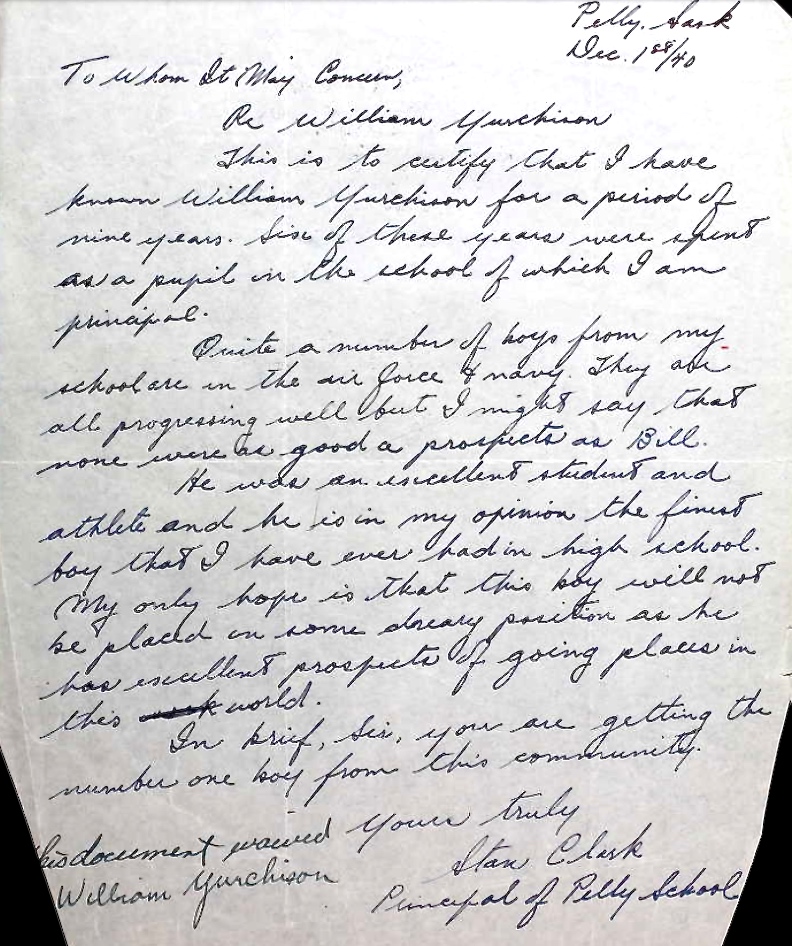 Pelly, Sask
Dec. 1st/40
To Whom It May Concern,
Re William Yurchison
This is to certify that I have
known William Yurchison for a period of
nine years. Six of these years were spent
as a pupil in the school of which I am
principal.
Quite a number of boys from my
school are in the air force & navy. They are
all progressing well but I might say that
none were as good a prospects as Bill.
He was an excellent student and
athlete and he is in my opinion the finest
boy that I have ever had in high school.
My only hope is that this boy will not
be placed in some dreary position as he
has excellent prospects of going places in
this world.
In brief, Sir, you are getting the
number one boy from this community.
Yours truly
Stan Clark
Principal of Pelly School
his document waived
William Yurchison